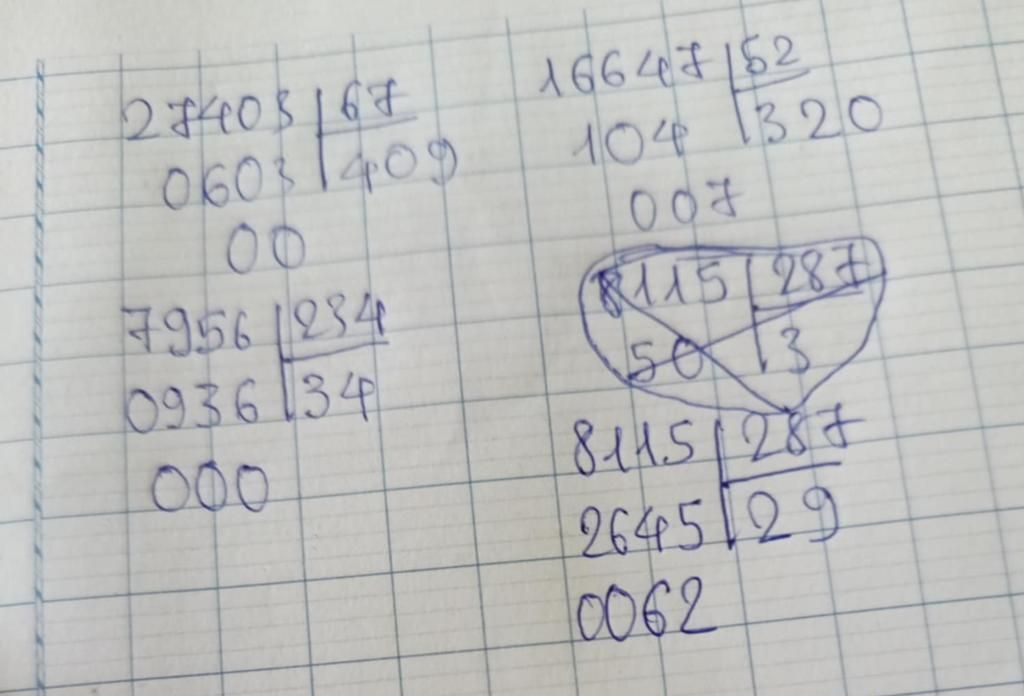 27403 67
0603 409
00
7956 234
0936 34
000
16647 52
104 320
007
8115 287
50 3
8115 287
2645 29
0062